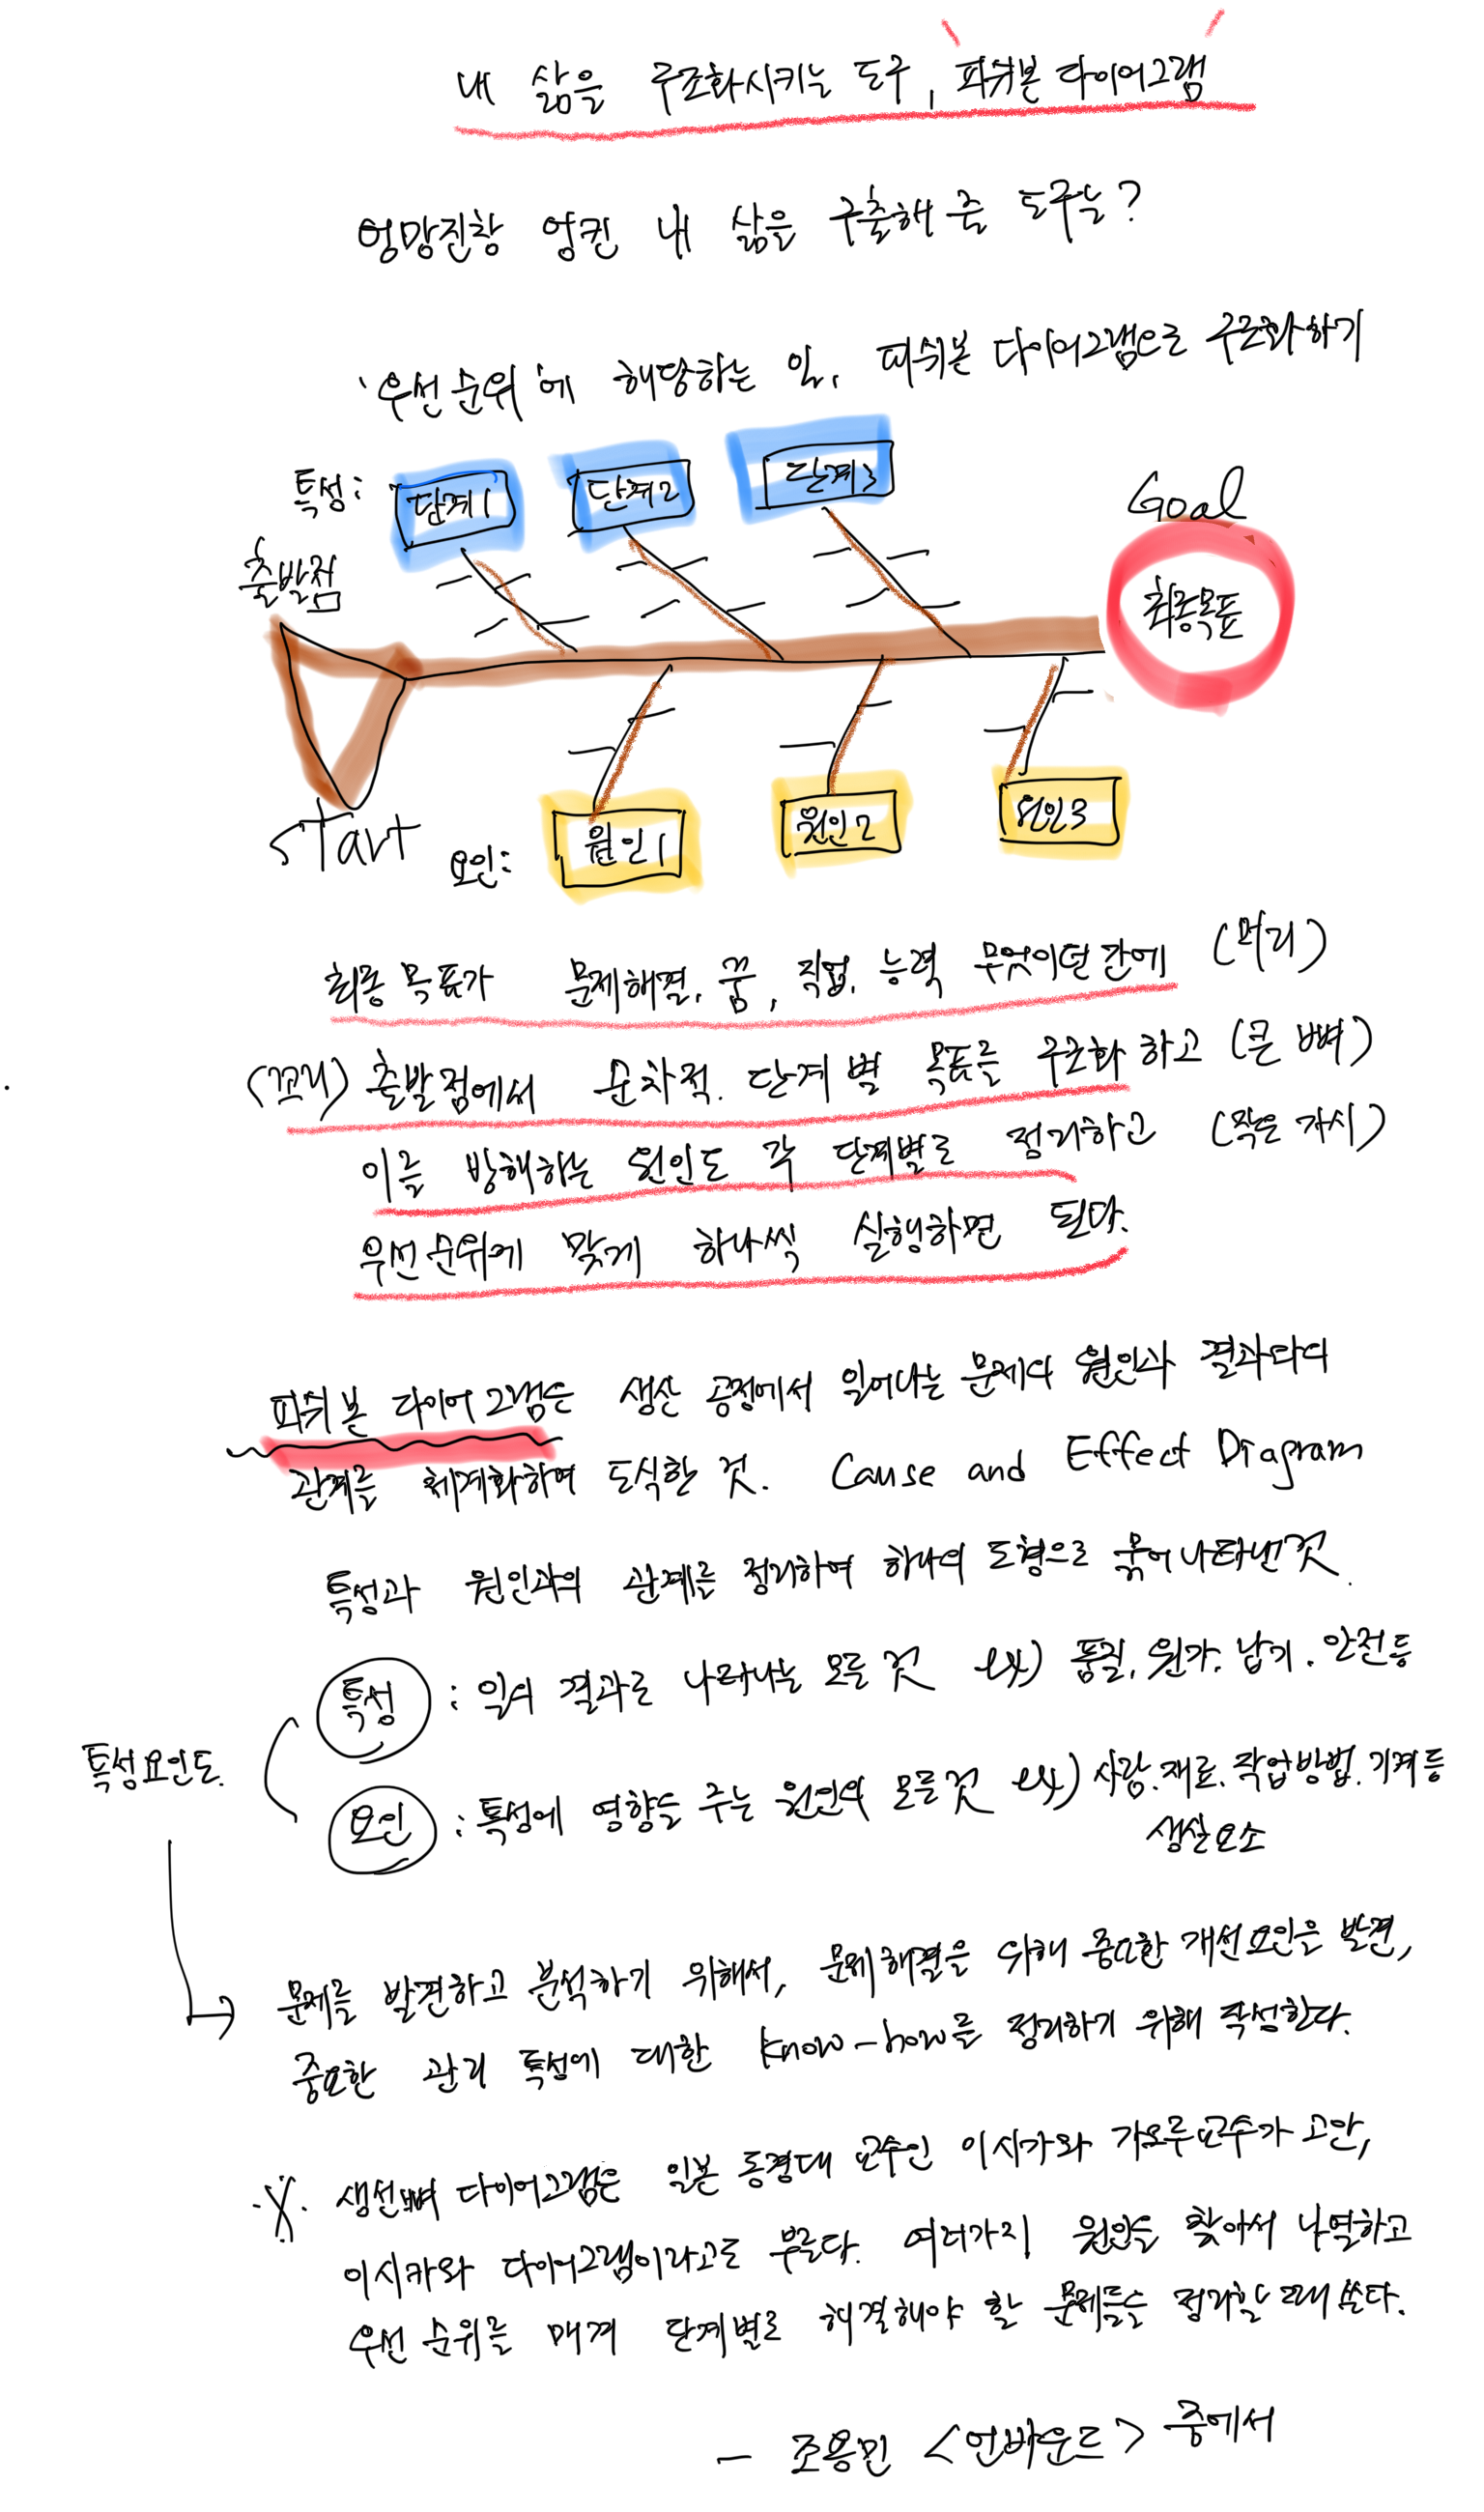 내 삶을 구조화시키는 도구, 피쉬본 다이어그램
엉망진창 엉킨 내 삶을 구출해 줄 도구는?
'우선순위'에 해당하는 일, 피쉬본 다이어그램으로 구조화하기
특성: 단계1 단계2 단계3
Goal
출발점
최종목표
start
요인: 원인1 원인2 원인3
최종 목표가 문제해결, 꿈, 직업, 능력 무엇이던 간에 (머리)
(꼬리) 출발점에서 순차적. 단계별 목표를 구조화 하고 (큰 뼈)
이를 방해하는 원인도 각 단계별로 정리하고 (작은 가시)
우선순위에 맞게 하나씩 실행하면 된다.
피쉬본 다이어그램은 생산 공정에서 일어나는 문제의 원인과 결과와의
관계를 체계화하여 도식한 것. Cause and Effect Diagram
특성과 원인과의 관계를 정리하여 하나의 도형으로 묶어 나타낸 것.
특성 : 일의 결과로 나타나는 모든 것 ex) 품질, 원가, 납기. 안전등
특성요인도.
요인 : 특성에 영향을 주는 원인의 모든 것 ex) 사람.재료.작업방법.기계등
생산요소
문제를 발견하고 분석하기 위해서, 문제해결을 위해 중요한 개선요인을 발견,
중요한 관리 특성에 대한 know-how를 정리하기 위해 작성한다.
※ 생선뼈 다이어그램은 일본 동경대 교수인 이시가와 가오루교수가 고안,
이시카와 다이어그램이라고도 부른다. 여러가지 원인을 찾아서 나열하고
우선 순위를 매겨 단계별로 해결해야 할 문제들을 정리할 때 쓴다.
- 조용민 <언바운드> 중에서